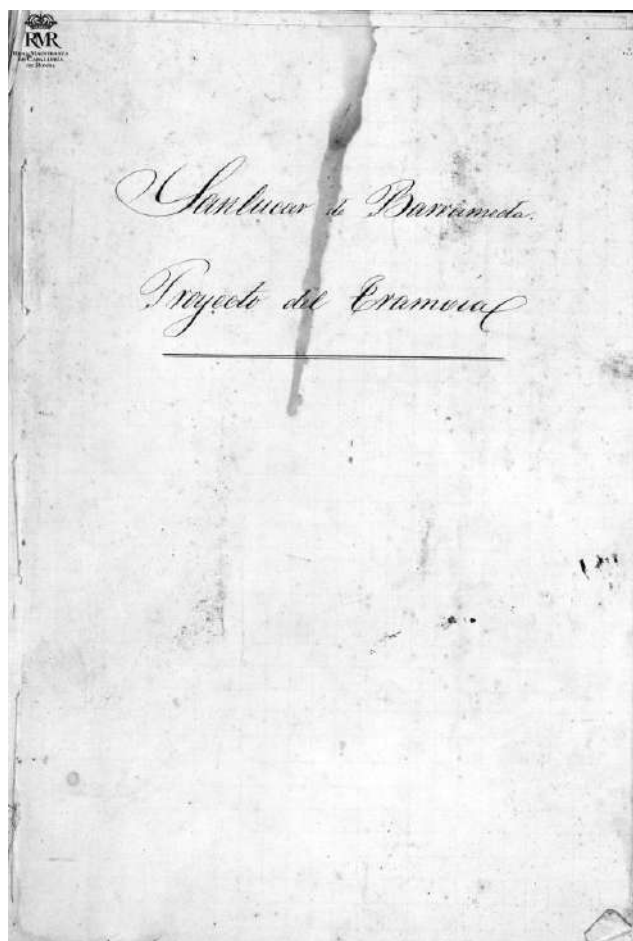 RMR
REAL MAESTRANZA
DE CABALLERÍA
DE RONDA
Sanlucar de Barrameda.
Proyecto del Tramvia